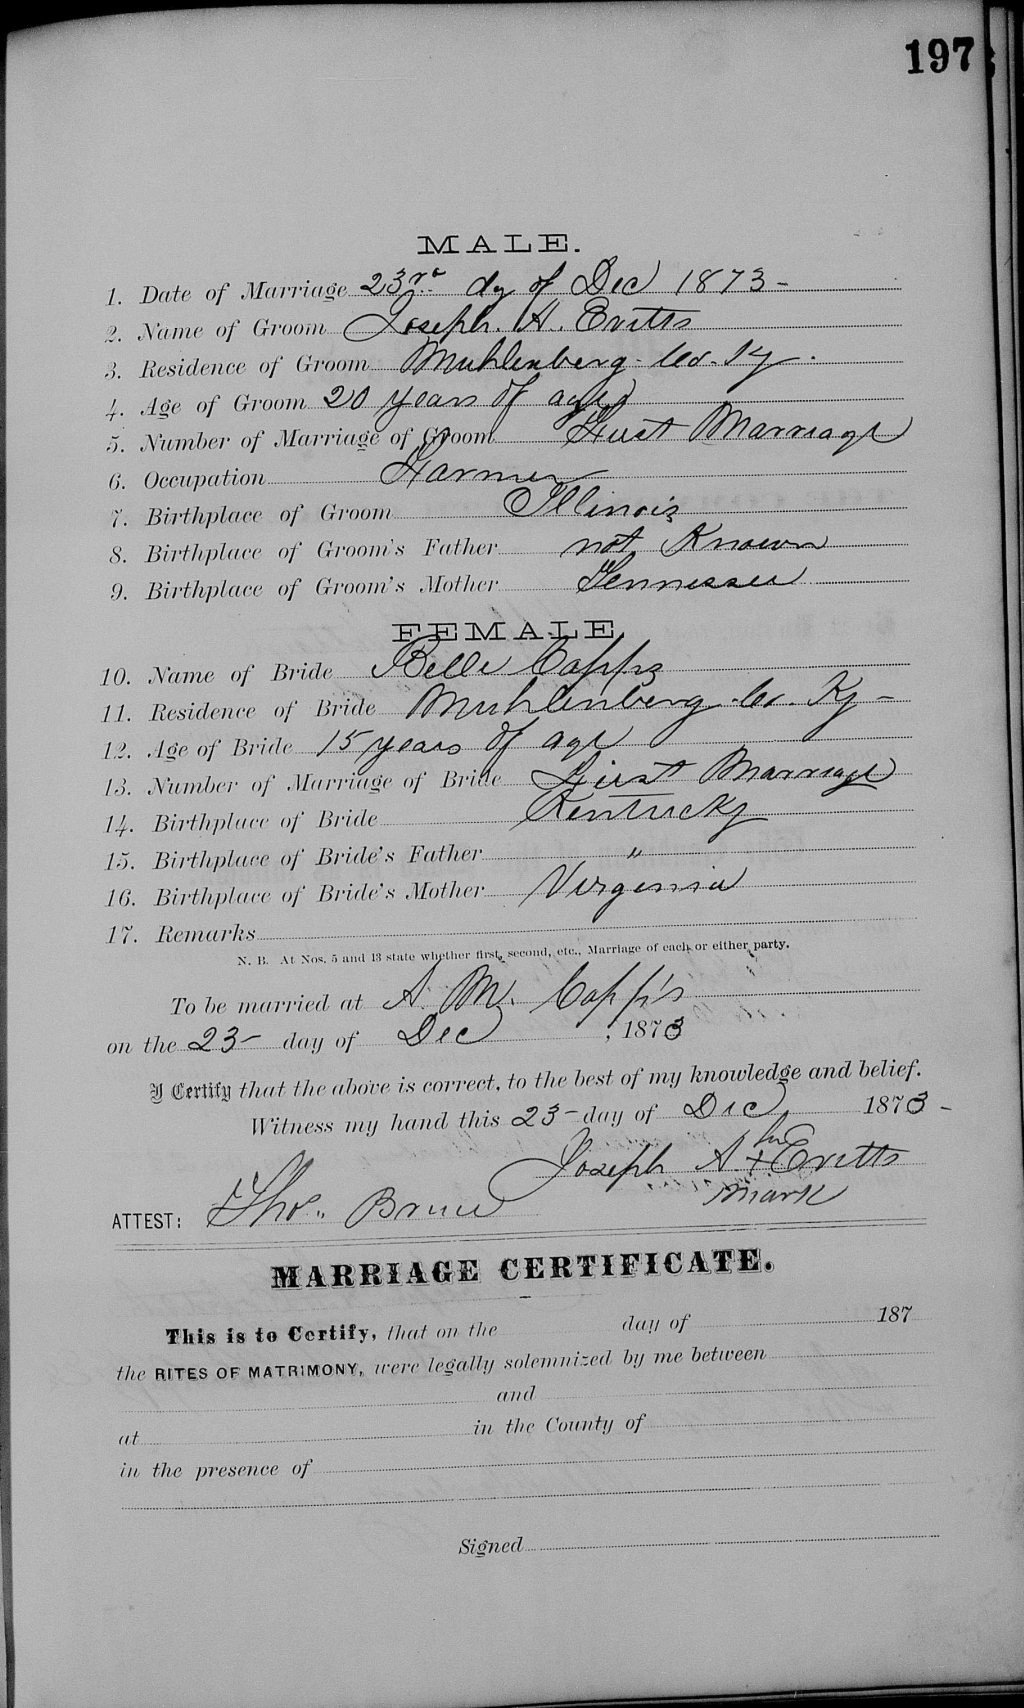 197
MALE.
1. Date of Marriage 23rd dy of Dec 1873-
2. Name of Groom Joseph. A. Evitts
3. Residence of Groom Muhlenberg Co. Ky.
4. Age of Groom 20 years of age
5. Number of Marriage of Groom First Marriage
6. Occupation Farmer
7. Birthplace of Groom Illinois
8. Birthplace of Groom's Father not Known
9. Birthplace of Groom's Mother Tennessee
FEMALE
10. Name of Bride Belle Capps
11. Residence of Bride Muhlenberg Co. Ky-
12. Age of Bride 15 years of age
13. Number of Marriage of Bride First Marriage
14. Birthplace of Bride Kentucky
15. Birthplace of Bride's Father "
16. Birthplace of Bride's Mother Virginia
17. Remarks
N. B. At Nos. 5 and 13 state whether first, second, etc., Marriage of each or either party.
To be married at A. M. Capp's
on the 23- day of Dec, 1873
I Certify that the above is correct, to the best of my knowledge and belief.
Witness my hand this 23- day of Dec, 1873-
his
Joseph A. + Evitts
mark
ATTEST: Tho. Bruce
MARRIAGE CERTIFICATE.
This is to Certify, that on the day of 187
the RITES OF MATRIMONY, were legally solemnized by me between
and
at in the County of
in the presence of
Signed